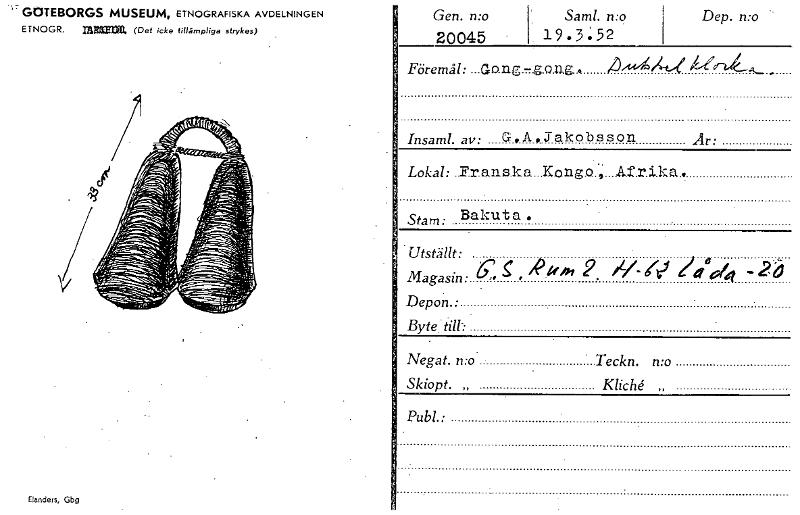 GÖTEBORGS MUSEUM, ETNOGRAFISKA AVDELNINGEN
ETNOGR. (Det icke tillämpliga strykes)
33 cm
Elanders, Gbg
Gen. n:o Saml. n:o Dep. n:o
20045 19.3.52
Föremål: Gong-gong. Dubbelklocka.
Insaml. av: G.A.Jakobsson År:
Lokal: Franska Kongo, Afrika.
Stam: Bakuta.
Utställt:
Magasin: G.S. Rum 2. H-63 låda-20
Depon.:
Byte till:
Negat. n:o Teckn. n:o
Skiopt. „ Kliché „
Publ.: